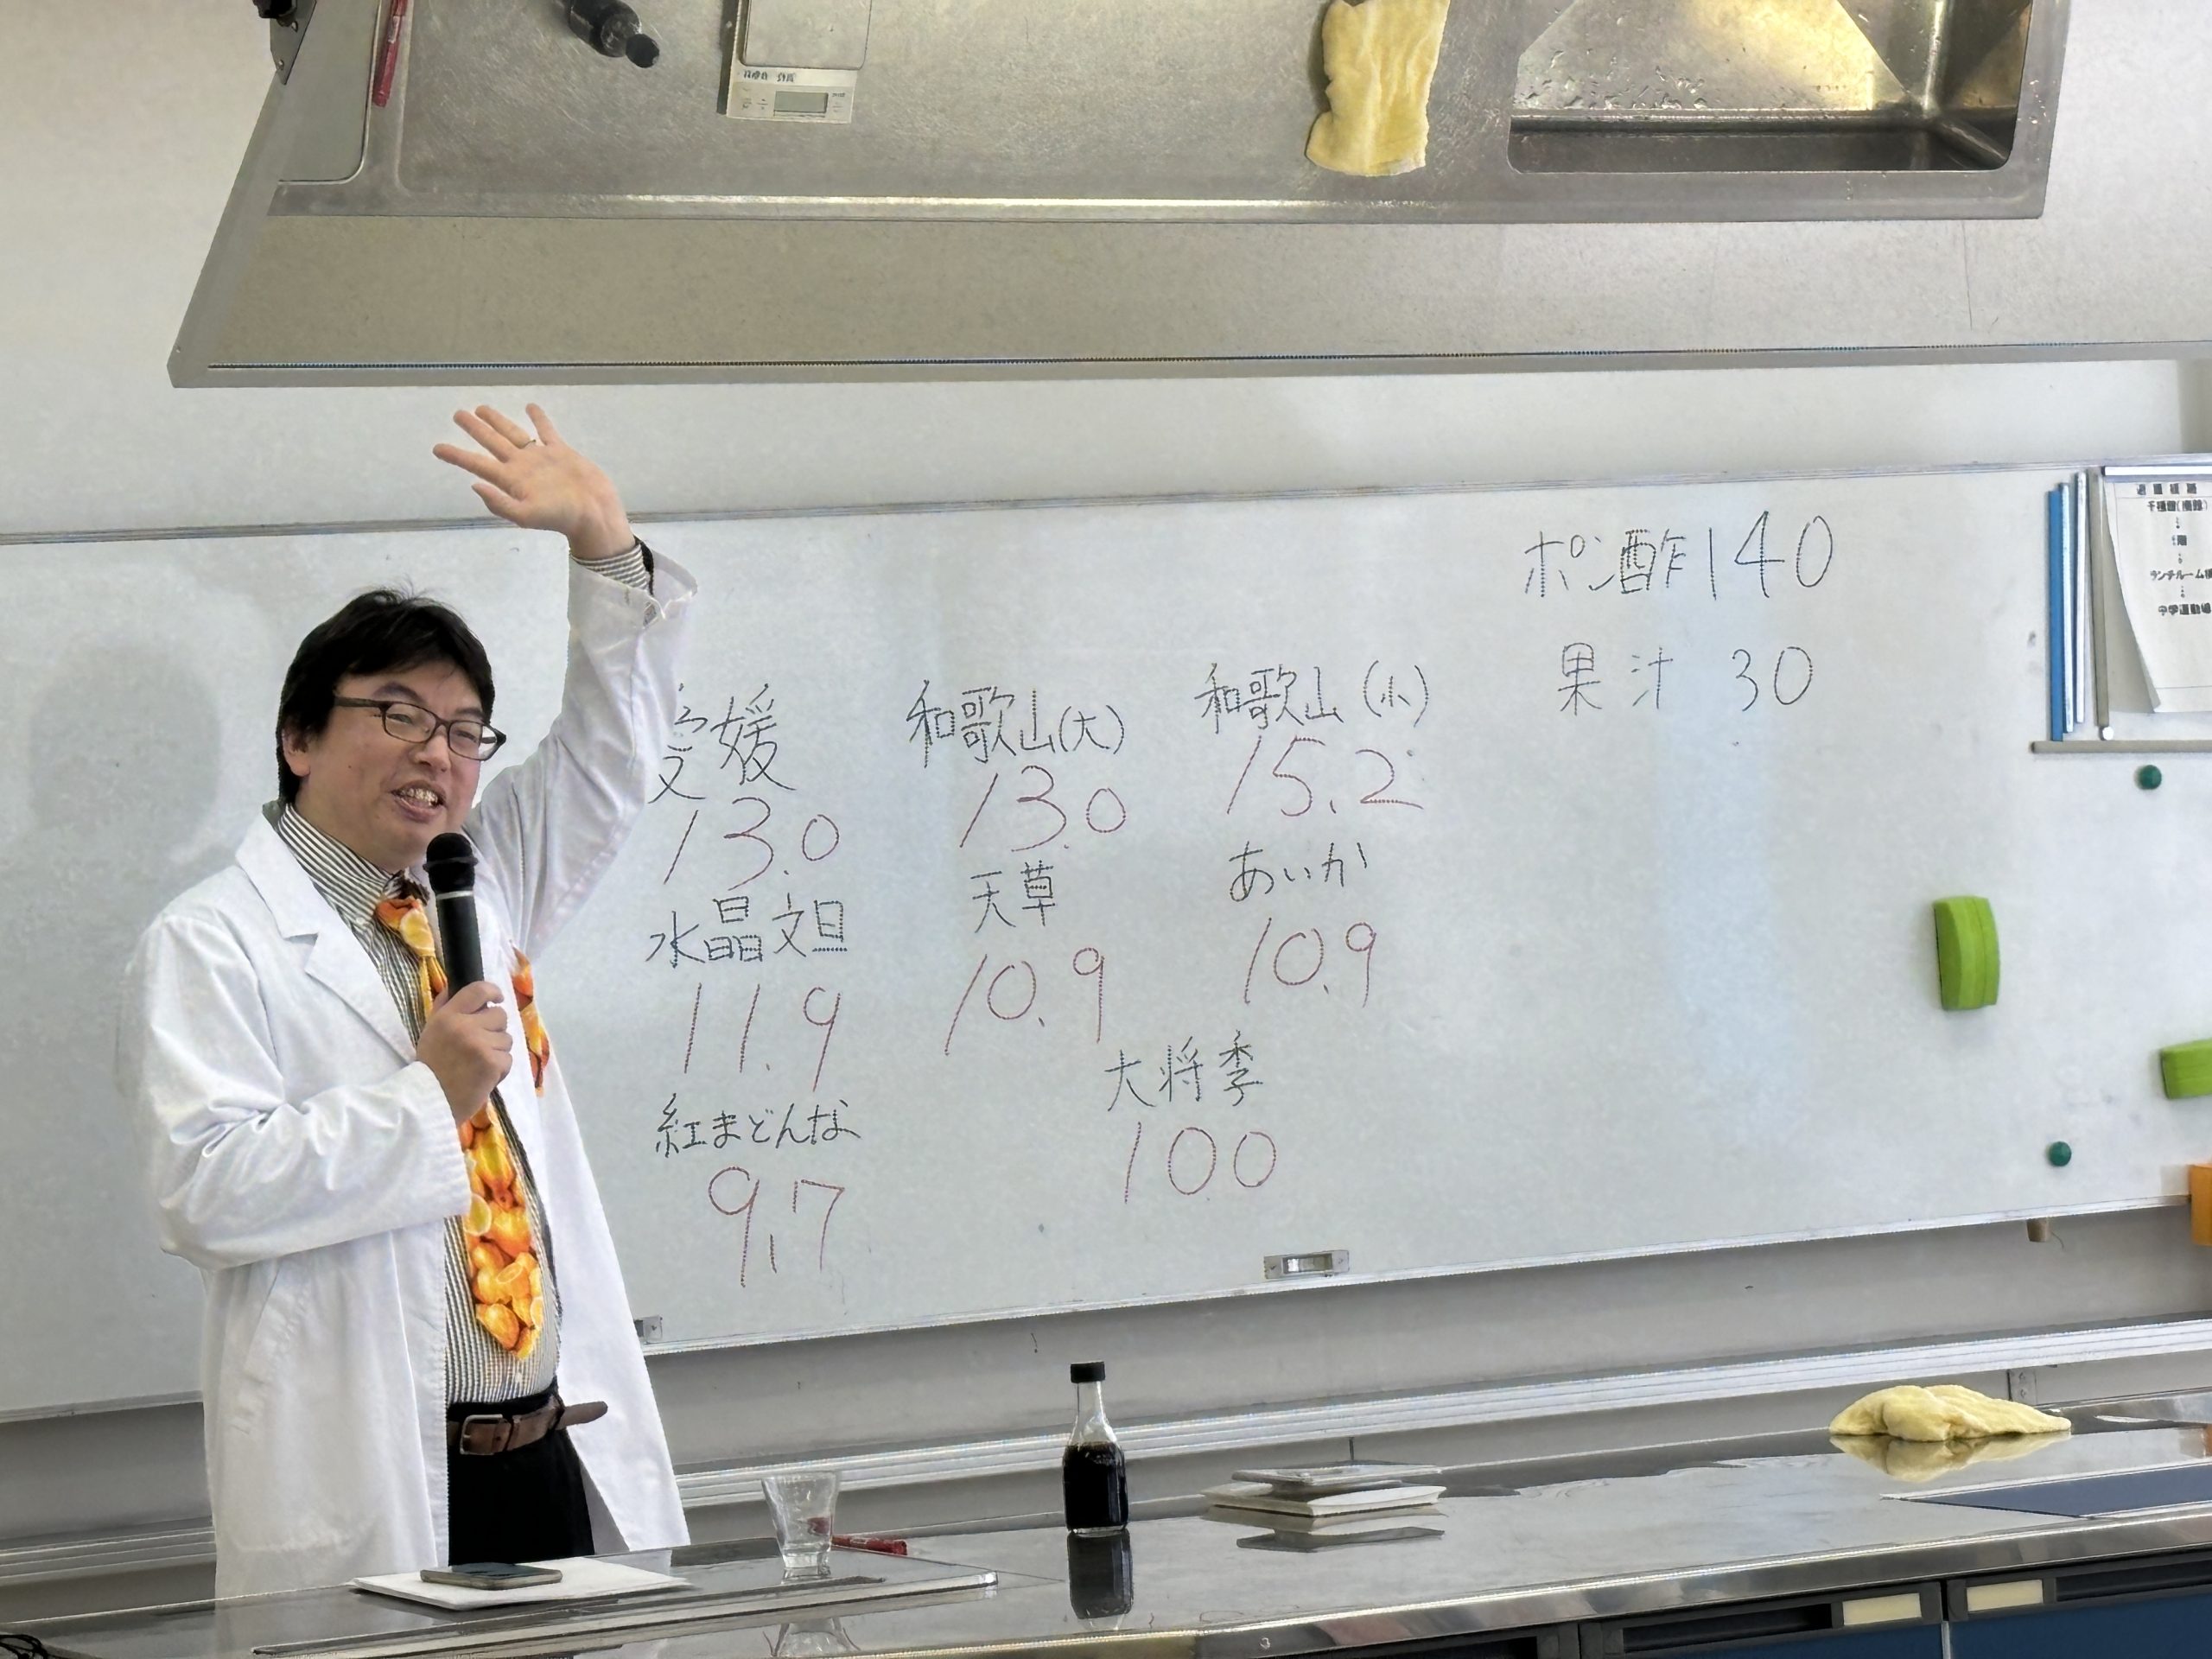 ポン酢 140
果汁 30
愛媛
13.0
和歌山(大)
13.0
和歌山(小)
15.2
水晶文旦
11.9
天草
10.9
あいか
10.9
紅まどんな
9.7
大将季
10.0
ランチルーム
3